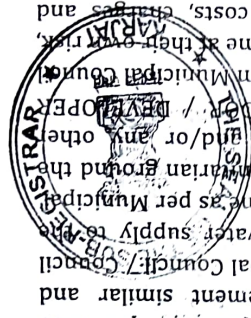 similar and
Council / Council
supply to the
as per Municipal
ground the
and/or any other
/ DEVELOPER
Municipal Council
at their own risk,
costs, charges and
UB-REGISTRAR
KARJAT